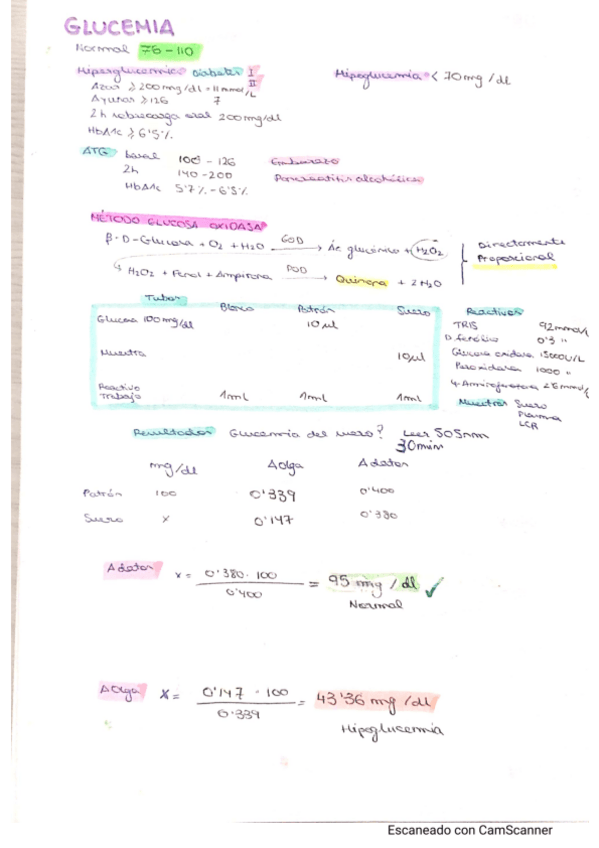 GLUCEMIA
Normal 76-110
Hiperglucemia Diabetes I
II
Hipoglucemia < 70 mg/dl
Azar ≥ 200 mg/dl = 11 mmol/L
Ayunas ≥ 126 7
2h sobrecarga oral 200 mg/dl
HbA1c ≥ 6'5%
ATG basal 100 - 126 Embarazo
2h 140 - 200 Pancreatitis alcohólica
HbA1c 5'7% - 6'5%
MÉTODO GLUCOSA OXIDASA
β-D-Glucosa + O2 + H2O GOD → Ác glucónico + H2O2
H2O2 + Fenol + Ampirona POD → Quinona + 2 H2O
Directamente
Proporcional
Tubos Blanco Patrón Suero
Glucosa 100 mg/dl 10 µl
Muestra 10 µl
Reactivo
Trabajo 1ml 1ml 1ml
Reactivos
TRIS 92 mmol/L
D. fenólico 0'3 "
Glucosa oxidasa 15000 U/L
Peroxidasa 1000 "
Muestras Suero
Plasma
LCR
Resultados Glucemia del suero? Leer 505nm
30min
mg/dl A Olga A dator
Patrón 100 0'339 0'400
Suero x 0'147 0'380
A dator x = 0'380 · 100 / 0'400 = 95 mg/dl ✓
Normal
A Olga X = 0'147 · 100 / 0.339 = 43'36 mg/dl
Hipoglucemia
Escaneado con CamScanner